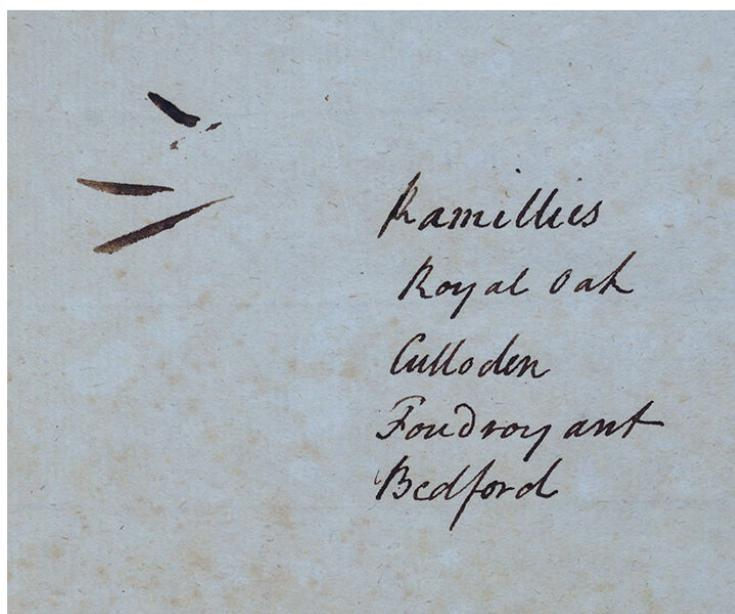 Ramillies
Royal Oak
Culloden
Foudroyant
Bedford